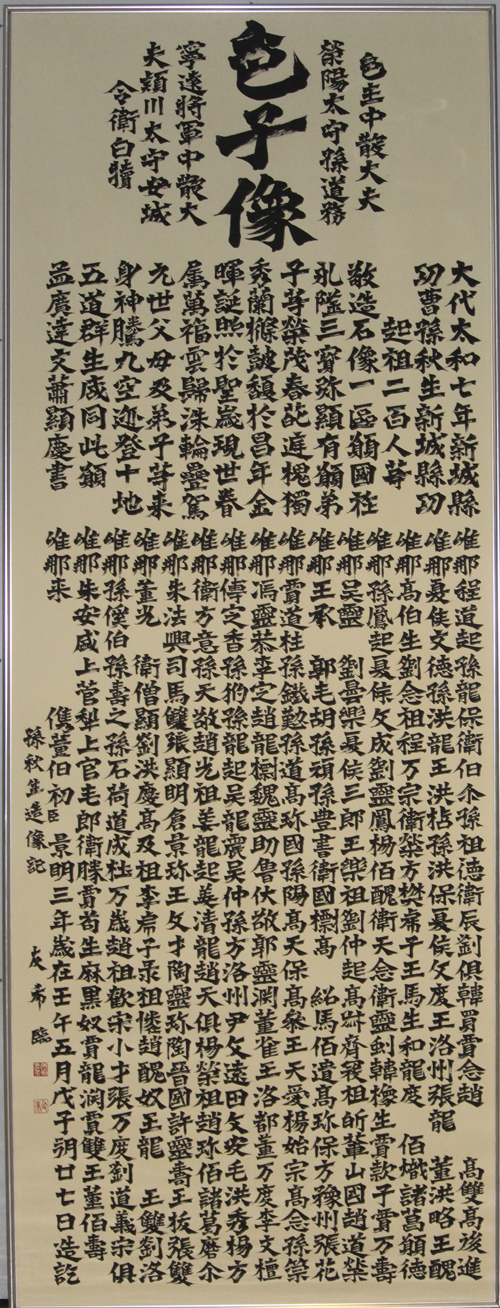 邑主中散大夫
榮陽太守孫道務
邑子像
寧遠將軍中散大
夫頴川太守安城
令衛白犢
大代太和七年新城縣
功曹孫秋生新城縣功
起祖二百人等
敬造石像一區願國祚
永隆三寶弥顯有願弟
子等榮茂春葩庭槐獨
秀蘭條鼓馥於昌年金
暉誕照於聖歲現世眷
属萬福雲歸洙輪疊駕
元世父母及弟子等来
身神騰九空迹登十地
五道群生咸同此願
孟廣達文蕭顯慶書
唯那程道起孫龍保衛伯尒孫祖德衛辰劉俱韓買賈念趙 高雙高浚進
唯那夏侯文德孫洪龍王洪枯孫洪保夏侯文度王洛州張龍 董洪略王醜
唯那高伯生劉念祖程万宗衛榮方樊虎子王馬生和龍度 佰熾諸葛願德
唯那孫鳳起夏侯文成劉靈鳳楊佰醜衛天念衛靈劍韓橡生賈款子賈万壽
唯那吳靈 劉臺樂夏侯三郎王樂祖劉仲起高 齊 祖昕董山國趙道榮
唯那王承 郭毛胡孫頑孫豊書衛國檦高 紹馬佰遺高珎保方豫州張花
唯那賈道柱孫鐵懃孫道高珎國孫陽高天保高叅王天愛楊始宗高念孫榮
唯那馮靈恭李定趙龍檦魏靈助魯伏敬郭靈渕董雀王洛都董万度李文檀
唯那傅定香孫豹孫龍起吳龍震吳仲孫方洛州尹文遠田文安毛洪秀楊方
唯那衛方意孫天敬趙光祖姜龍起姜清龍趙天俱楊榮祖趙珎佰諸葛磨尒
唯那朱法興司馬雙張顯明倉景珎王文才陶靈珎陶晉國許靈壽王拔張雙
唯那董光 衛僧顯劉洪慶高及祖李虎子 祖 趙醜奴王龍 王雙劉洛
唯那孫僕伯孫壽之孫石荷道成杜万歲趙祖歡宋小才張万度劉道義宗俱
唯那朱安咸上菅犁上官毛郎衛勝賈苟生麻黑奴賈龍渕賈雙王董佰壽
唯那来 儁董伯初臣 景明三年歲在壬午五月戊子朔廿七日造訖
孫秋生造像記
友希臨